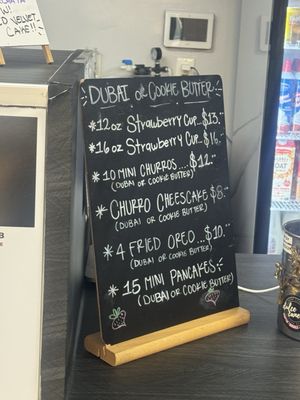 W/
RED VELVET
CAKE!!
DUBAI OR COOKIE BUTTER
* 12 oz STRAWBERRY CUP... $13.
* 16 oz STRAWBERRY CUP... $16.
* 10 MINI CHURROS... $12
(DUBAI OR COOKIE BUTTER)
* CHURRO CHEESCAKE $8
(DUBAI OR COOKIE BUTTER)
* 4 FRIED OREO... $10.
(DUBAI OR COOKIE BUTTER)
* 15 MINI PANCAKES
(DUBAI OR COOKIE BUTTER)